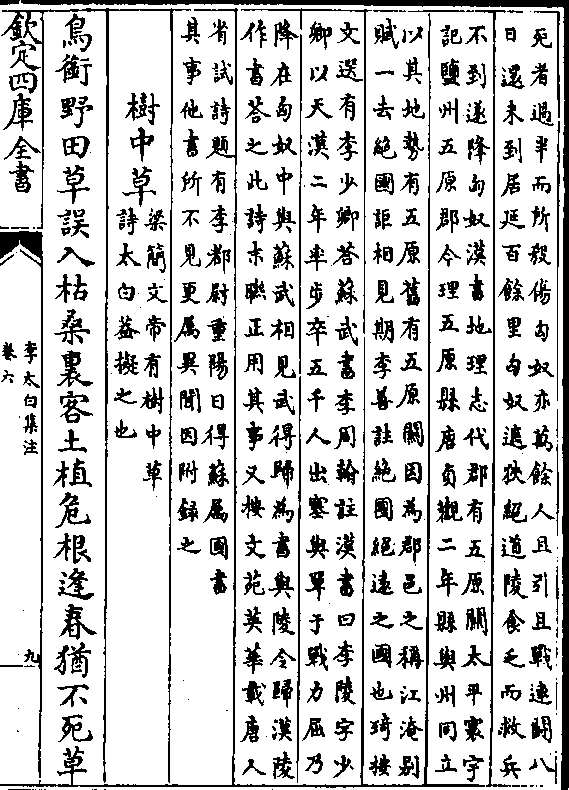 死者過半而所殺傷匈奴亦萬餘人且引且戰連鬭八
日還未到居延百餘里匈奴遮狹絶道陵食乏而救兵
不到遂降匈奴漢書地理志代郡有五原關太平寰宇
記鹽州五原郡今理五原縣唐貞觀二年縣與州同立
以其地勢有五原舊有五原關因為郡邑之稱江淹别
賦一去絶國詎相見期李善註絶國絶遠之國也琦按
文選有李少卿答蘇武書李周翰註漢書曰李陵字少
卿以天漢二年率步卒五千人出塞與單于戰力屈乃
降在匈奴中與蘇武相見武得歸為書與陵令歸漢陵
作書答之此詩末聯正用其事又按文苑英華載唐人
省試詩題有李都尉重陽日得蘇屬國書
其事他書所不見更屬異聞因附録之
樹中草
梁簡文帝有樹中草
詩太白葢擬之也
鳥銜野田草誤入枯桑裏客土植危根逢春猶不死草
欽定四庫全書
李太白集注
卷六
九